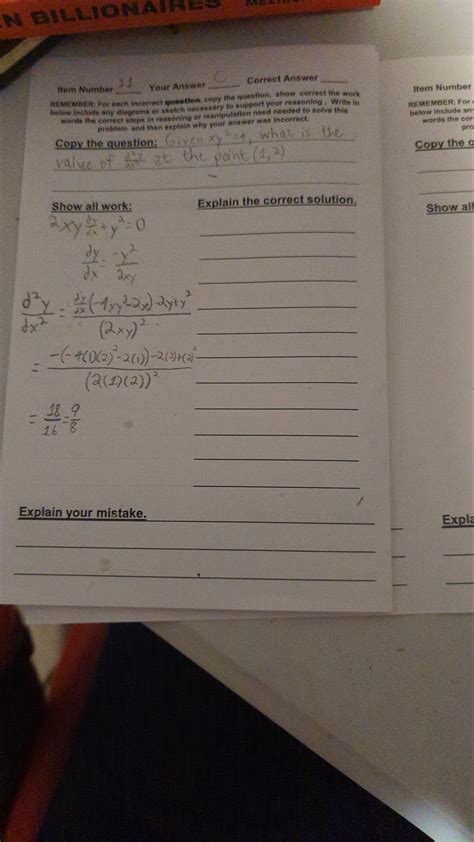 N BILLIONAIRES
Item Number 11 Your Answer C Correct Answer
REMEMBER: For each incorrect question, copy the question, show correct the work
below include any diagrams or sketch necessary to support your reasoning, Write in
words the correct steps in reasoning or manipulation need needed to solve this
problem and then explain why your answer was incorrect.
Copy the question: Given xy²=4, what is the
value of d²y/dx² at the point (1,2)
Show all work:
2xy dy/dx + y² = 0
dy/dx = -y²/2xy
d²y/dx² = dy/dx(-4xy²-2x)-2y+y² / (2xy)²
= -(-4(1)(2)²-2(1))-2(2)+(2)² / (2(1)(2))²
= 18/16 = 9/8
Explain the correct solution.
Explain your mistake.
Item Number
REMEMBER: For
below include
words the cor
Copy the q
Show all
Expla